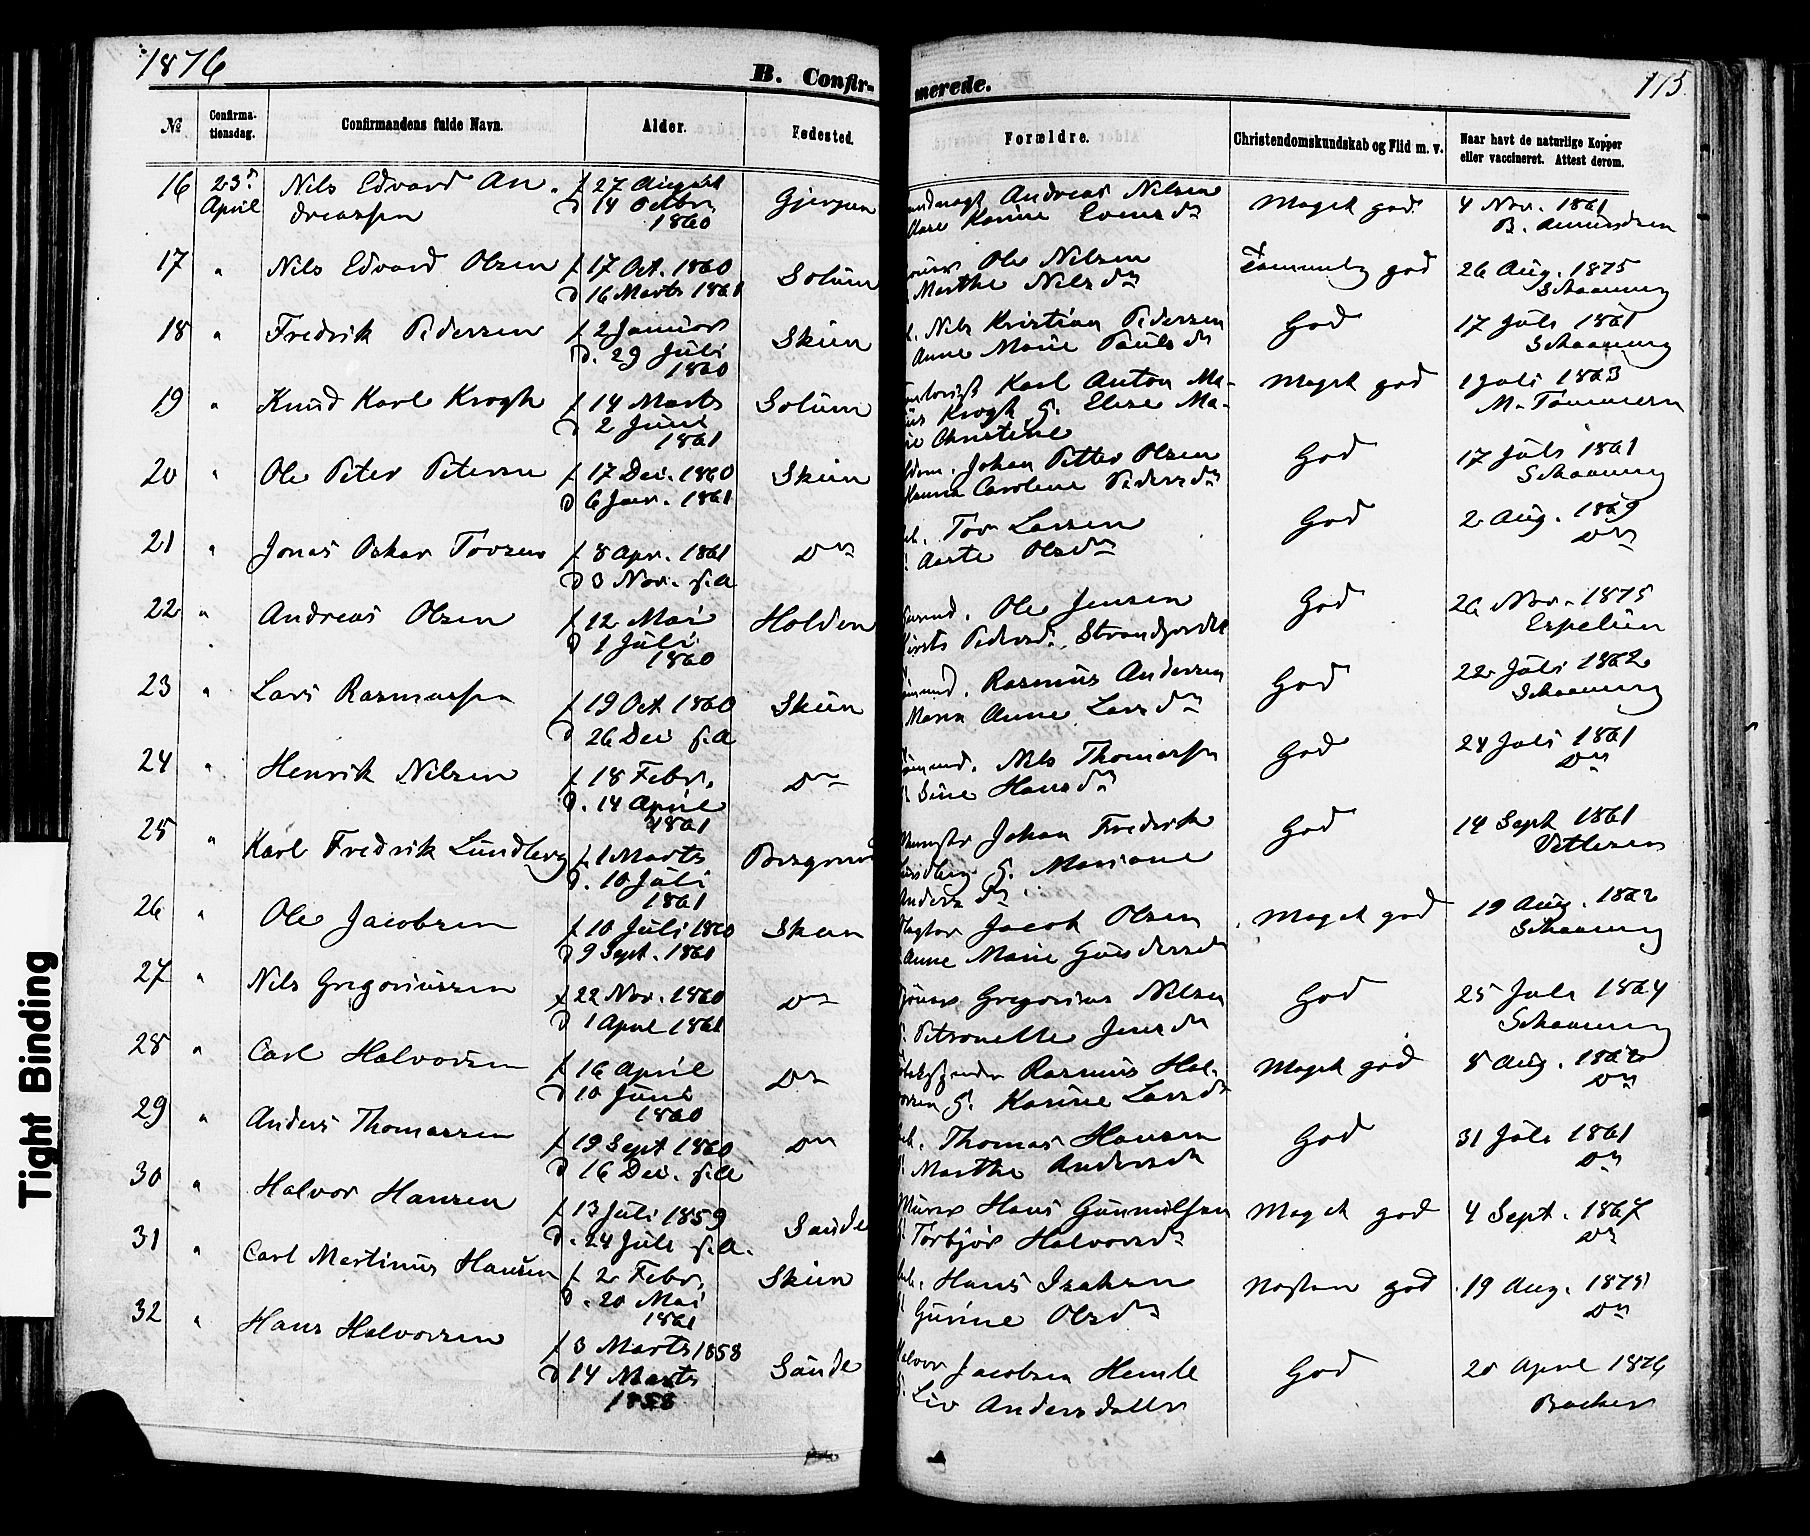 1876
B. Confir-
merede.
115.
№
Confirma-
tionsdag.
Confirmandens fulde Navn.
Alder.
Fødested.
Forældre.
Christendomskundskab og Flid m. v.
Naar havt de naturlige Kopper
eller vaccineret. Attest derom.
16 23d Nils Edvard An- f 27 August Gjerpen Andreas Nilsen Meget god 4 Nov. 1861
April dreassen D 14 Octbr Karine Evensdn B. Amundsen
1860
17 " Nils Edvard Olsen f 17 Oct. 1860 Solum Ole Nilsen Temmelig god 26 Aug. 1875
D 16 Marts 1861 Marthe Nilsdn Schaaning
18 " Fredrik Pedersen f 2 Januar Skien Nils Kristian Pedersen God 17 Juli 1861
D. 29 Juli Anne Marie Paulsdn Schaaning
1860
19 " Knud Karl Krogh f 14 Marts Solum Karl Anton Ma- Meget god 1 Juli 1863
D 2 Juni Krogh g. Elise Ma-
1861 Christine
20 " Ole Peter Petersen f 17 Dec. 1860 Skien Johan Petter Olsen God 17 Juli 1861
D 6 Jan. 1861 Hanna Caroline Pedersdn Schaaning
21 " Jonas Oskar Torsen f 8 Apr. 1861 Do Tor Larsen God 2 Aug. 1869
D 3 Nov. s.A Aaste Olsdn Do
22 " Andreas Olsen f 12 Mai Holden Ole Jensen God 26 Nov. 1875
D 1 Juli Pedersd. Espelien
1860
23 " Lars Rasmussen f 19 Oct 1860 Skien Rasmus Andersen God 22 Juli 1862
D 26 Dec s.A Maren Anne Larsdn Schaaning
24 " Henrik Nilsen f 18 Febr. Do Nils Thomassen God 24 Juli 1861
D. 14 April Sine Hansdn Do
1861
25 " Karl Fredrik Lundberg f. 1 Marts Johan Fredrik God 14 Sept 1861
D. 10 Juli Lundberg g. Mariane
1861 Andersdn
26 " Ole Jacobsen f 10 Juli 1860 Skien Jacob Olsen Meget god 19 Aug. 1862
D 9 Sept. 1860 Anne Marie Schaaning
27 " Nils Gregoriussen f 22 Nov. 1860 Do Gregorius Nilsen God 25 Juli 1864
D 1 April 1861 Petronelle Jensdn Schaaning
28 " Carl Halvorsen f 16 April Do Rasmus Hal- Meget god 8 Aug. 1862
D 10 Juni vorsen g. Karine Larsdn Do
1860
29 " Anders Thomassen f 19 Sept 1860 Do Thomas Hansen God 31 Juli 1861
D 16 Dec. s.A Marthe Andersdn Do
30 " Halvor Hansen f 13 Juli 1859 Sande Murer Hans Meget god 4 Sept. 1867
D. 24 Juli s.A. Torbjør Halvorsdn Do
31 " Carl Martinus Hansen f 2 Febr. Skien Hans Isaksen Næsten god 19 Aug. 1875
D. 20 Mai Gurine Olsdn Do
1861
32 " Hans Halvorsen f 3 Marts 1858 Sande Halvor Jacobsen God 20 April 1876
D 14 Marts Liv Backer
1858
Tight Binding